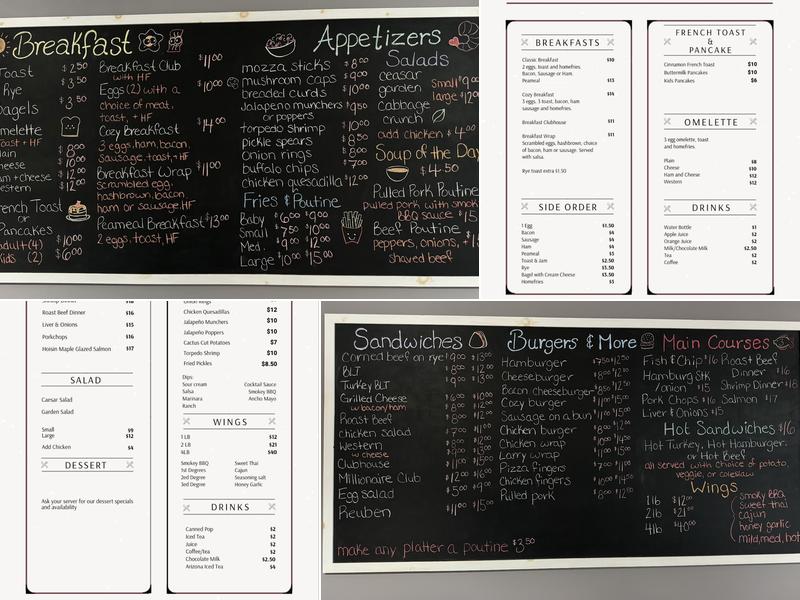 Breakfast
Toast $2.50
Rye $3.50
agels $3.50
melette
Toast + HF
lain $8.00
heese $10.00
am + cheese $12.00
estern $12.00
rench Toast
or
Pancakes
Adult (4) $10.00
Kids (2) $6.00
Breakfast Club $11.00
with HF
Eggs (2) with a $10.00
choice of meat,
toast, + HF
Cozy Breakfast $14.00
3 eggs, ham, bacon,
sausage, toast, + HF
Breakfast Wrap $11.00
scrambled egg,
hashbrown, bacon
ham or sausage, HF
Peameal Breakfast $13.00
2 eggs, toast, HF
Appetizers
mozza sticks $8.00
mushroom caps $9.00
breaded curds $10.00
Jalapeño munchers $9.50
or poppers
torpedo shrimp
pickle spears
Onion rings
buffalo chips $7.00
chicken quesadilla $12.00
Fries & Poutine
Baby $6.00 $9.00
Small $7.50 $10.00
Med. $9.00 $12.00
Large $10.00 $15.00
Salads
ceasar
garden
small $9.00
large $12.00
cabbage
crunch
add chicken $4.00
Soup of the Day
$4.50
Pulled Pork Poutine
pulled pork with smok
BBQ sauce $15
Beef Poutine
peppers, onions, +
shaved beef
BREAKFASTS
Classic Breakfast $10
2 eggs, toast and homefries.
Bacon, Sausage or Ham.
Peameal $13
Cozy Breakfast $14
3 eggs, 3 toast, bacon, ham
sausage and homefries.
Breakfast Clubhouse $11
Breakfast Wrap $11
Scrambled eggs, hashbrown, choice
of bacon, ham or sausage. Served
with salsa.
Rye toast extra $1.50
SIDE ORDER
1 Egg $1.50
Bacon $4
Sausage $4
Ham $4
Peameal $5
Toast & Jam $2.50
Rye $3.50
Bagel with Cream Cheese $3.50
Homefries $3
FRENCH TOAST
&
PANCAKE
Cinnamon French Toast $10
Buttermilk Pancakes $10
Kids Pancakes $6
OMELETTE
3 egg omelette, toast
and homefries.
Plain $8
Cheese $10
Ham and Cheese $12
Western $12
DRINKS
Water Bottle $1
Apple Juice $2
Orange Juice $2
Milk/Chocolate Milk $2.50
Tea $2
Coffee $2
Shrimp Dinner $18
Roast Beef Dinner $16
Liver & Onions $15
Porkchops $16
Hoisin Maple Glazed Salmon $17
SALAD
Caesar Salad
Garden Salad
Small $9
Large $12
Add Chicken $4
DESSERT
Ask your server for our dessert specials
and availability
Onion Rings
Chicken Quesadillas $12
Jalapeño Munchers $10
Jalapeño Poppers $10
Cactus Cut Potatoes $7
Torpedo Shrimp $10
Fried Pickles $8.50
Dips:
Sour cream Cocktail Sauce
Salsa Smokey BBQ
Marinara Ancho Mayo
Ranch
WINGS
1 LB $12
2 LB $21
4LB $40
Smokey BBQ Sweet Thai
1st Degrees Cajun
2ed Degree Seasoning salt
3ed Degree Honey Garlic
DRINKS
Canned Pop $2
Iced Tea $2
Juice $2
Coffee/tea $2
Chocolate Milk $2.50
Arizona Iced Tea $4
Sandwiches
Corned beef on rye $9.00 $13.00
BLT
Turkey BLT $9.00 $13.00
Grilled Cheese $6.00 $10.00
w bacon/ham
Roast Beef
chicken salad $7.00 $11.00
Western
w cheese
Clubhouse $11.00 $15.00
Millionaire Club $12.00 $16.00
Egg salad $5.00 $9.00
Reuben $11.00 $15.00
make any platter a poutine $3.50
Burgers & More
Hamburger $7.50 $12.50
Cheeseburger
Bacon cheeseburger
Cozy burger
Sausage on a bun
Chicken burger
Chicken wrap
Larry wrap
Pizza fingers $7.00 $11.00
Chicken fingers
Pulled pork $8.00 $12.00
Main Courses
Fish & Chip $16 Roast Beef
Hamburg Stk Dinner $16
/onion $15 Shrimp Dinner $18
Pork Chops $16 Salmon $17
Liver & Onions $15
Hot Sandwiches $16
Hot Turkey, Hot Hamburger,
or Hot Beef
all served with choice of potato,
veggie, or coleslaw
Wings
1 lb $12.00
2lb $21.00
4lb $40.00
smoky BBQ
sweet thai
cajun
honey garlic
mild, med, hot